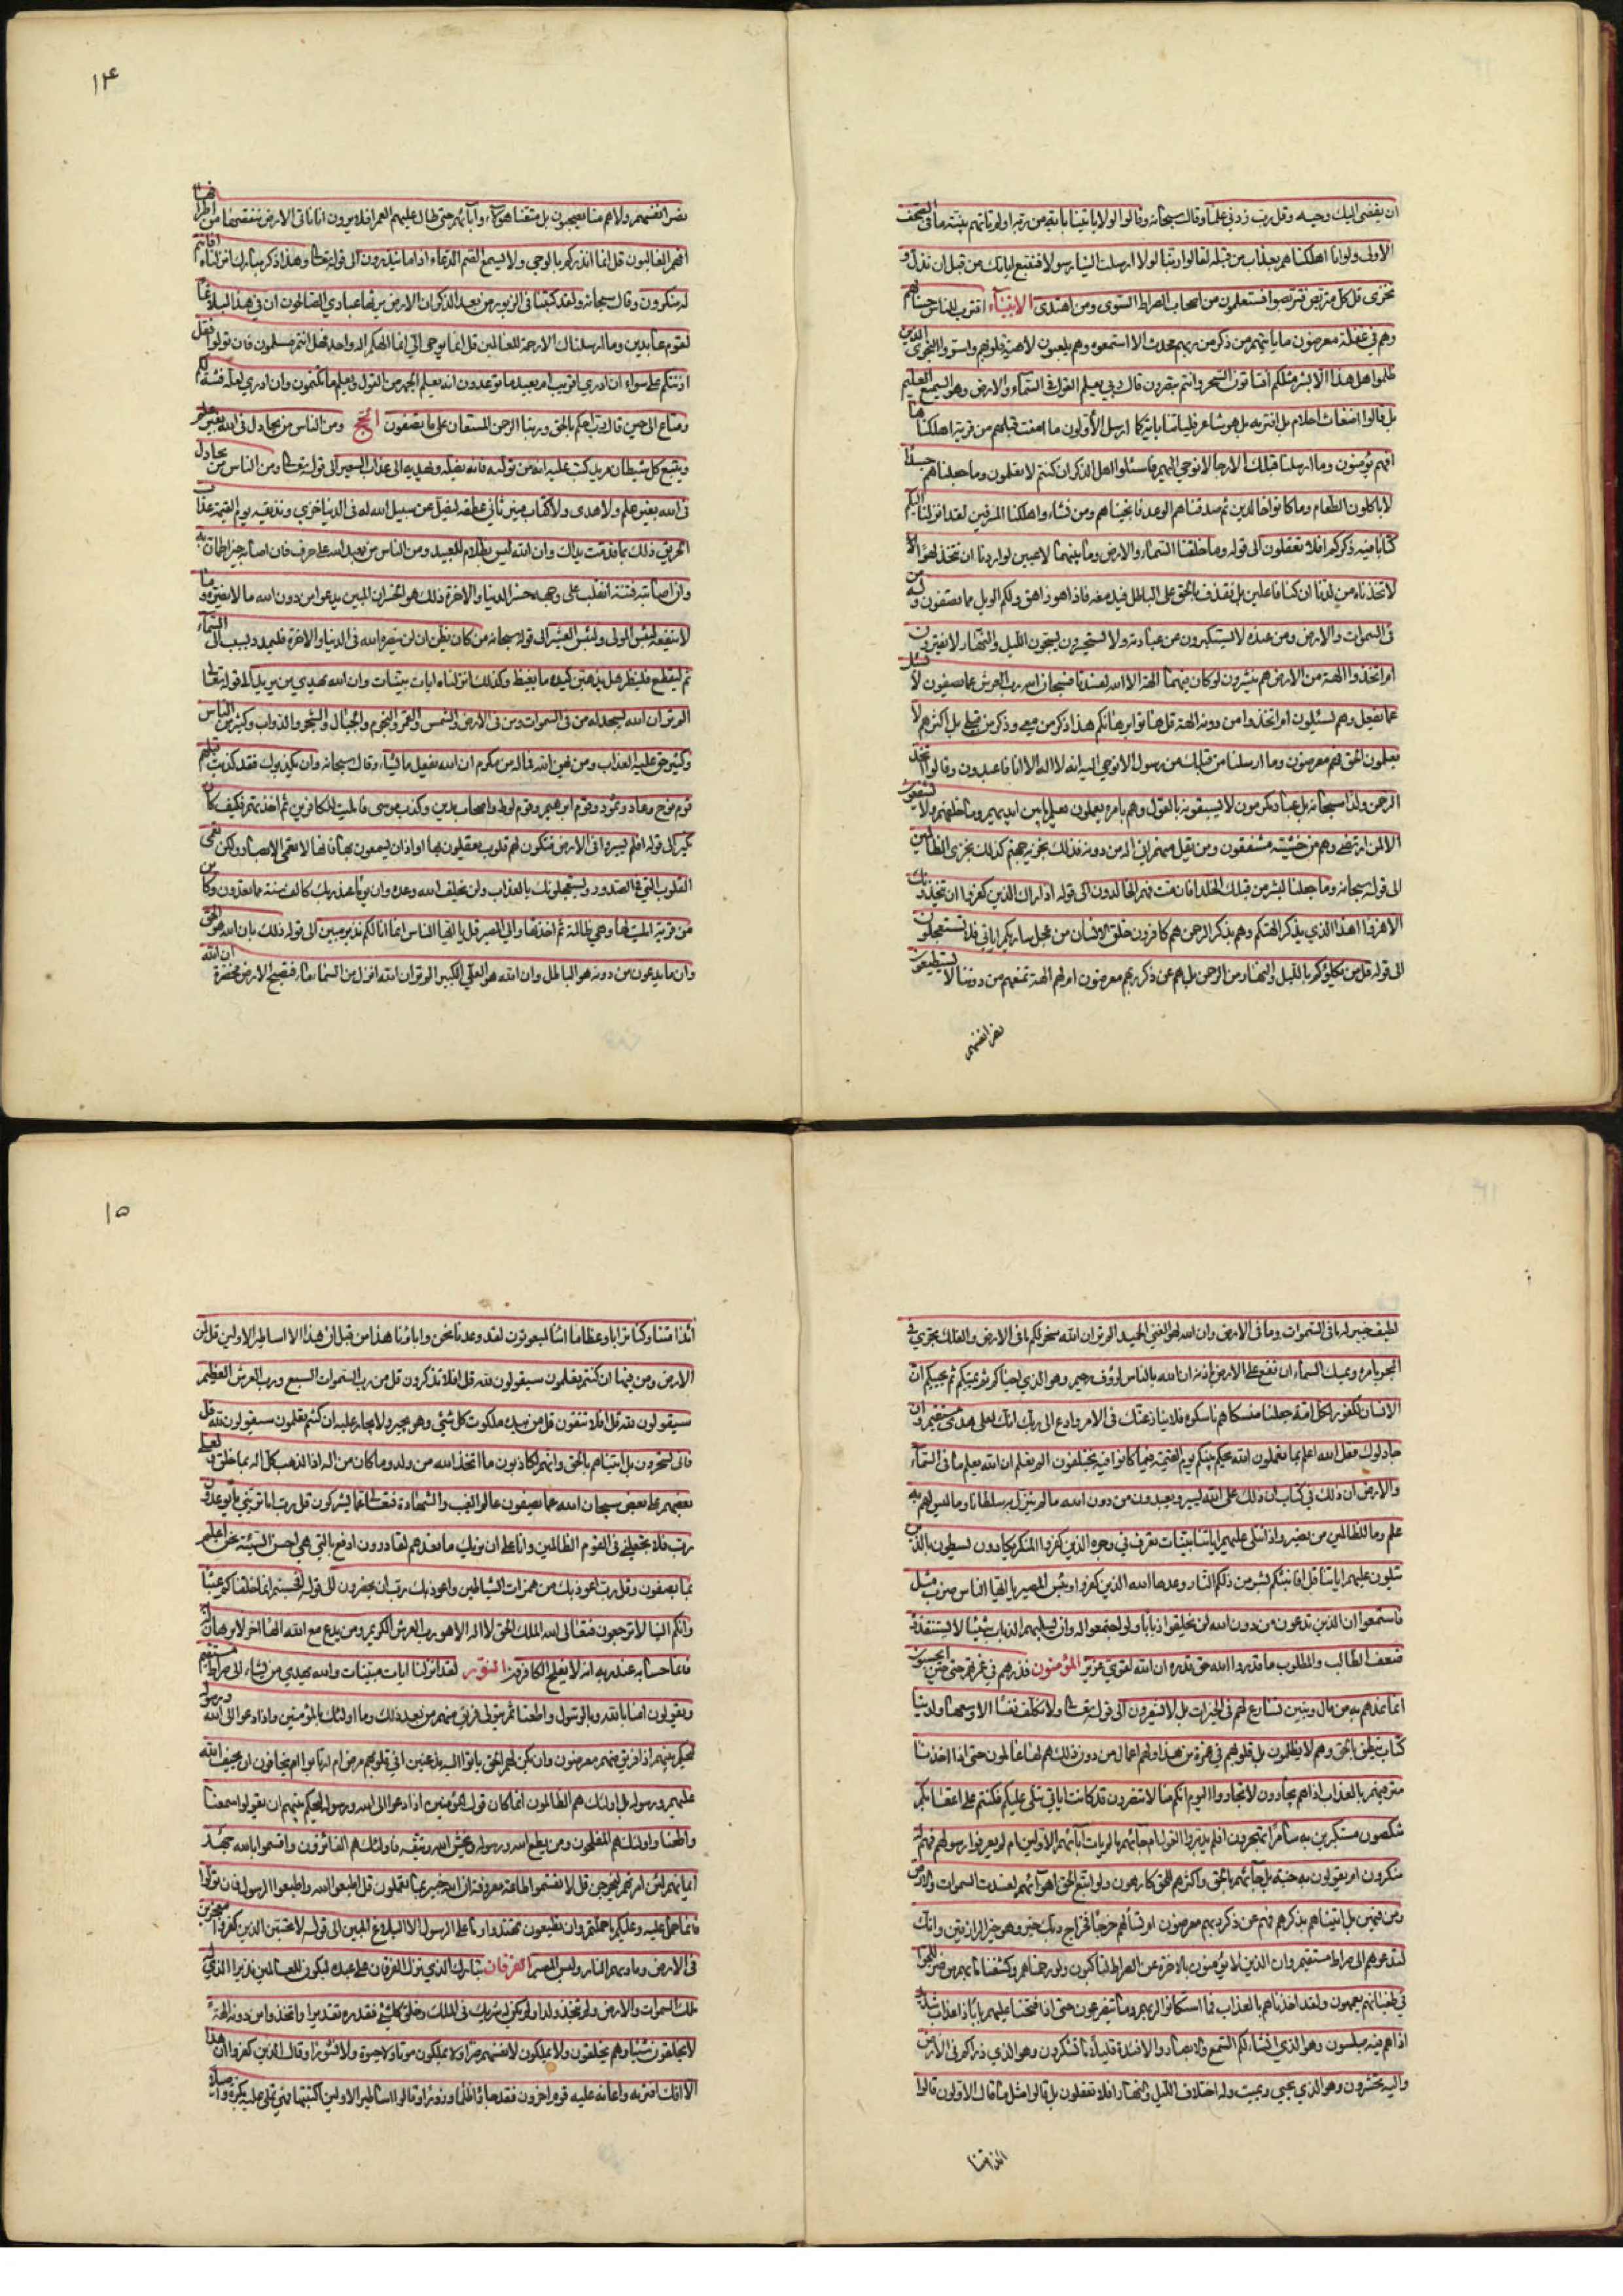 ان يقضى اليك وحيه وقل رب زدني علما وقال سبحانه وقالوا لولا ياتينا باية من ربه اولم تاتهم بينة ما في الصحف
الاولى ولو انا اهلكناهم بعذاب من قبله لقالوا ربنا لولا ارسلت الينا رسولا فنتبع اياتك من قبل ان نذل و
نخزى قل كل متربص فتربصوا فستعلمون من اصحاب الصراط السوى ومن اهتدى الانبياء اقترب للناس حسابهم
وهم في غفلة معرضون ما ياتيهم من ذكر من ربهم محدث الا استمعوه وهم يلعبون لاهية قلوبهم واسروا النجوى الذين
ظلموا هل هذا الا بشر مثلكم افتاتون السحر وانتم تبصرون قال ربي يعلم القول في السماء والارض وهو السميع العليم
بل قالوا اضغاث احلام بل افتريه بل هو شاعر فلياتنا باية كما ارسل الأولون ما امنت قبلهم من قرية اهلكناها
افهم يؤمنون وما ارسلنا قبلك الا رجالا نوحي اليهم فاسئلوا اهل الذكر ان كنتم لا تعلمون وما جعلناهم جسدًا
لا ياكلون الطعام وما كانوا خالدين ثم صدقناهم الوعد فانجيناهم ومن نشاء واهلكنا المسرفين لقد انزلنا اليكم
كتابا فيه ذكركم افلا تعقلون الى قوله وما خلقنا السماء والارض وما بينهما لاعبين لو اردنا ان نتخذ لهوًا
لاتخذناه من لدنا ان كنا فاعلين بل نقذف بالحق على الباطل فيدمغه فاذا هو زاهق ولكم الويل مما تصفون وله من
في السموات والارض ومن عنده لا يستكبرون عن عبادته ولا يستحسرون يسبحون الليل والنهار لا يفترون
ام اتخذوا الهة من الارض هم ينشرون لو كان فيهما الهة الا الله لفسدتا فسبحان الله رب العرش عما يصفون لا يسئل
عما يفعل وهم يسئلون ام اتخذوا من دونه الهة قل هاتوا برهانكم هذا ذكر من معي وذكر من قبلي بل اكثرهم لا
يعلمون الحق فهم معرضون وما ارسلنا من قبلك من رسول الا نوحي اليه انه لا اله الا انا فاعبدون وقالوا اتخذ
الرحمن ولدًا سبحانه بل عباد مكرمون لا يسبقونه بالقول وهم بامره يعملون يعلم ما بين ايديهم وما خلفهم ولا يشفعون
الا لمن ارتضى وهم من خشيته مشفقون ومن يقل منهم اني اله من دونه فذلك نجزيه جهنم كذلك نجزي الظالمين
الى قوله سبحانه وما جعلنا لبشر من قبلك الخلد افان مت فهم الخالدون الى قوله واذا راك الذين كفروا ان يتخذونك
الا هزوا اهذا الذي يذكر الهتكم وهم بذكر الرحمن هم كافرون خلق الانسان من عجل ساريكم اياتي فلا تستعجلون
الى قوله قل من يكلؤكم بالليل والنهار من الرحمن بل هم عن ذكر ربهم معرضون ام لهم الهة تمنعهم من دوننا لا يستطيعون
نصر انفسهم
١٤
نصر انفسهم ولا هم منا يصحبون بل متعنا هؤلاء وآباءهم حتى طال عليهم العمر افلا يرون انا ناتي الارض ننقصها من اطرافها
افهم الغالبون قل انما انذركم بالوحي ولا يسمع الصم الدعاء اذا ما ينذرون الى قوله تعالى وهذا ذكر مبارك انزلناه افانتم
له منكرون وقال سبحانه ولقد كتبنا في الزبور من بعد الذكر ان الارض يرثها عبادي الصالحون ان في هذا لبلاغا
لقوم عابدين وما ارسلناك الا رحمة للعالمين قل انما يوحى الي انما الهكم اله واحد فهل انتم مسلمون فان تولوا فقل
اذنتكم على سواء ان ادري اقريب ام بعيد ما توعدون انه يعلم الجهر من القول ويعلم ما تكتمون وان ادري لعله فتنة لكم
ومتاع الى حين قال رب احكم بالحق وربنا الرحمن المستعان على ما تصفون الحج ومن الناس من يجادل في الله بغير علم
ويتبع كل شيطان مريد كتب عليه انه من تولاه فانه يضله ويهديه الى عذاب السعير الى قوله تعالى ومن الناس من يجادل
في الله بغير علم ولا هدى ولا كتاب منير ثاني عطفه ليضل عن سبيل الله له في الدنيا خزي ونذيقه يوم القيمة عذاب
الحريق ذلك بما قدمت يداك وان الله ليس بظلام للعبيد ومن الناس من يعبد الله على حرف فان اصابه خير اطمان به
وان اصابته فتنة انقلب على وجهه خسر الدنيا والاخرة ذلك هو الخسران المبين يدعوا من دون الله ما لا يضره وما
لا ينفعه لبئس المولى ولبئس العشير الى قوله سبحانه من كان يظن ان لن ينصره الله في الدنيا والاخرة فليمدد بسبب الى السماء
ثم ليقطع فلينظر هل يذهبن كيده ما يغيظ وكذلك انزلناه ايات بينات وان الله يهدي من يريد الى قوله تعالى
الم تر ان الله يسجد له من في السموات ومن في الارض والشمس والقمر والنجوم والجبال والشجر والدواب وكثير من الناس
وكثير حق عليه العذاب ومن يهن الله فما له من مكرم ان الله يفعل ما يشاء وقال سبحانه وان يكذبوك فقد كذبت قبلهم
قوم نوح وعاد وثمود وقوم ابرهيم وقوم لوط واصحاب مدين وكذب موسى فامليت للكافرين ثم اخذتهم فكيف كان
نكير الى قوله افلم يسيروا في الارض فتكون لهم قلوب يعقلون بها او اذان يسمعون بها فانها لا تعمى الابصار ولكن تعمى
القلوب التي في الصدور ويستعجلونك بالعذاب ولن يخلف الله وعده وان يومًا عند ربك كالف سنة مما تعدون وكاين
من قرية امليت لها وهي ظالمة ثم اخذتها والي المصير قل يا ايها الناس انما انا لكم نذير مبين الى قوله ذلك بان الله هو الحق
وان ما يدعون من دونه هو الباطل وان الله هو العلي الكبير الم تر ان الله انزل من السماء ماء فتصبح الارض مخضرة ان الله
لطيف خبير له ما في السموات وما في الارض وان الله لهو الغني الحميد الم تر ان الله سخر لكم ما في الارض والفلك تجري في
البحر بامره ويمسك السماء ان تقع على الارض الا باذنه ان الله بالناس لرؤوف رحيم وهو الذي احياكم ثم يميتكم ثم يحييكم ان
الانسان لكفور لكل امة جعلنا منسكا هم ناسكوه فلا ينازعنك في الامر وادع الى ربك انك لعلى هدى مستقيم وان
جادلوك فقل الله اعلم بما تعملون الله يحكم بينكم يوم القيمة فيما كانوا فيه يختلفون الم يعلم ان الله يعلم ما في السماء
والارض ان ذلك في كتاب ان ذلك على الله يسير ويعبدون من دون الله ما لم ينزل به سلطانا وما ليس لهم به
علم وما للظالمين من نصير واذا تتلى عليهم اياتنا بينات تعرف في وجوه الذين كفروا المنكر يكادون يسطون بالذين
يتلون عليهم اياتنا قل افانبئكم بشر من ذلكم النار وعدها الله الذين كفروا وبئس المصير يا ايها الناس ضرب مثل
فاستمعوا ان الذين تدعون من دون الله لن يخلقوا ذبابًا ولو اجتمعوا له وان يسلبهم الذباب شيئًا لا يستنقذوه
ضعف الطالب والمطلوب ما قدروا الله حق قدره ان الله لقوي عزيز المؤمنون فذرهم في غمرتهم حتى حين ايحسبون
انما نمدهم به من مال وبنين نسارع لهم في الخيرات بل لا يشعرون الى قوله تعالى ولا نكلف نفسًا الا وسعها ولدينا
كتاب ينطق بالحق وهم لا يظلمون بل قلوبهم في غمرة من هذا ولهم اعمال من دون ذلك هم لها عاملون حتى اذا اخذنا
مترفيهم بالعذاب اذا هم يجارون لا تجاروا اليوم انكم منا لا تنصرون قد كانت اياتي تتلى عليكم فكنتم على اعقابكم
تنكصون مستكبرين به سامرًا تهجرون افلم يدبروا القول ام جاءهم ما لم يات آباءهم الاولين ام لم يعرفوا رسولهم فهم له
منكرون ام يقولون به جنة بل جاءهم بالحق واكثرهم للحق كارهون ولو اتبع الحق اهواءهم لفسدت السموات والارض
ومن فيهن بل اتيناهم بذكرهم فهم عن ذكر ربهم معرضون ام تسالهم خرجًا فخراج ربك خير وهو خير الرازقين وانك
لتدعوهم الى صراط مستقيم وان الذين لا يؤمنون بالاخرة عن الصراط لناكبون ولو رحمناهم وكشفنا ما بهم من ضر للجوا
في طغيانهم يعمهون ولقد اخذناهم بالعذاب فما استكانوا لربهم وما يتضرعون حتى اذا فتحنا عليهم بابًا ذا عذاب شديد
اذا هم فيه مبلسون وهو الذي انشاء لكم السمع والابصار والافئدة قليلا ما تشكرون وهو الذي ذراكم في الارض
واليه تحشرون وهو الذي يحيي ويميت وله اختلاف الليل والنهار افلا تعقلون بل قالوا مثل ما قال الاولون قالوا
ائذا متنا
١٥
ائذا متنا وكنا ترابا وعظاما ائنا لمبعوثون لقد وعدنا نحن واباؤنا هذا من قبل ان هذا الا اساطير الاولين قل لمن
الارض ومن فيها ان كنتم تعلمون سيقولون لله قل افلا تذكرون قل من رب السموات السبع ورب العرش العظيم
سيقولون لله قل افلا تتقون قل من بيده ملكوت كل شئ وهو يجير ولا يجار عليه ان كنتم تعلمون سيقولون لله قل
فانى تسحرون بل اتيناهم بالحق وانهم لكاذبون ما اتخذ الله من ولد وما كان معه من اله اذا لذهب كل اله بما خلق ولعلى
بعضهم على بعض سبحان الله عما يصفون عالم الغيب والشهادة فتعالى عما يشركون قل رب اما تريني ما يوعدون
رب فلا تجعلني في القوم الظالمين وانا على ان نريك ما نعدهم لقادرون ادفع بالتي هي احسن السيئة نحن اعلم
بما يصفون وقل رب اعوذ بك من همزات الشياطين واعوذ بك رب ان يحضرون الى قوله افحسبتم انما خلقناكم عبثًا
وانكم الينا لا ترجعون فتعالى الله الملك الحق لا اله الا هو رب العرش الكريم ومن يدع مع الله الها اخر لا برهان له به
فانما حسابه عند ربه انه لا يفلح الكافرون النور لقد انزلنا ايات مبينات والله يهدي من يشاء الى صراط مستقيم
ويقولون امنا بالله وبالرسول واطعنا ثم يتولى فريق منهم من بعد ذلك وما اولئك بالمؤمنين واذا دعوا الى الله ورسوله
ليحكم بينهم اذا فريق منهم معرضون وان يكن لهم الحق ياتوا اليه مذعنين افي قلوبهم مرض ام ارتابوا ام يخافون ان يحيف الله
عليهم ورسوله بل اولئك هم الظالمون انما كان قول المؤمنين اذا دعوا الى الله ورسوله ليحكم بينهم ان يقولوا سمعنا
واطعنا واولئك هم المفلحون ومن يطع الله ورسوله ويخش الله ويتقه فاولئك هم الفائزون واقسموا بالله جهد
ايمانهم لئن امرتهم ليخرجن قل لا تقسموا طاعة معروفة ان الله خبير بما تعملون قل اطيعوا الله واطيعوا الرسول فان تولوا
فانما عليه ما حمل وعليكم ما حملتم وان تطيعوه تهتدوا وما على الرسول الا البلاغ المبين الى قوله لا تحسبن الذين كفروا معجزين
في الارض وماويهم النار ولبئس المصير الفرقان تبارك الذي نزل الفرقان على عبده ليكون للعالمين نذيرا الذي له
ملك السموات والارض ولم يتخذ ولدا ولم يكن له شريك في الملك وخلق كل شئ فقدره تقديرا واتخذوا من دونه الهة
لا يخلقون شيئا وهم يخلقون ولا يملكون لانفسهم ضرا ولا نفعا ولا يملكون موتا ولا حيوة ولا نشورا وقال الذين كفروا ان هذا
الا افك افتريه واعانه عليه قوم اخرون فقد جاؤا ظلما وزورا وقالوا اساطير الاولين اكتتبها فهي تملى عليه بكرة واصيلا